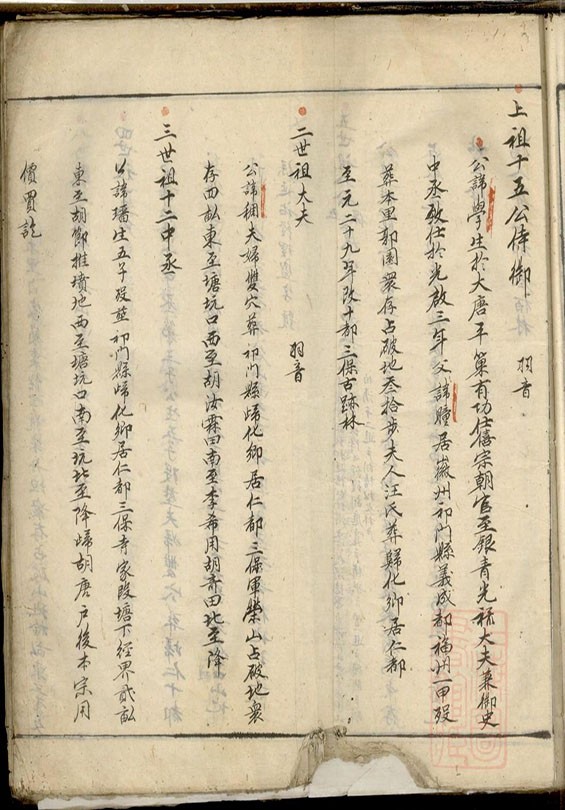 上祖十五公侍御　羽音
公諱學生於大唐平策有功仕僖宗朝官至銀青光祿大夫兼御史
中丞致仕於光啟三年父諱瞳居徽州祁門縣義成都福州一甲歿
葬本里郭園眾存占破地叁拾步夫人汪氏葬歸化鄉居仁都
至元二十九年改十都三保古跡林
二世祖大夫　羽音
公諱稠夫婦雙穴葬祁門縣歸化鄉居仁都三保軍榮山占破地眾
存四畝東至塘坑口西至胡汝霖田南至李希用胡齊田北至降
三世祖十二中丞
公諱墦生五子歿葬祁門縣歸化鄉居仁都三保寺家段塘下經界貳畝
東至胡節推墳地西至塘坑口南至坑北至降歸胡唐戶後本宗用
價買訖